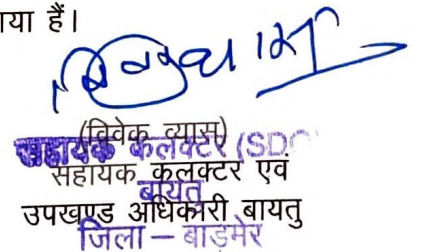 या हैं।
(विवेक व्यास)
सहायक कलक्टर (SDO
सहायक कलक्टर एवं
बायतु
उपखण्ड अधिकारी बायतु
जिला – बाड़मेर